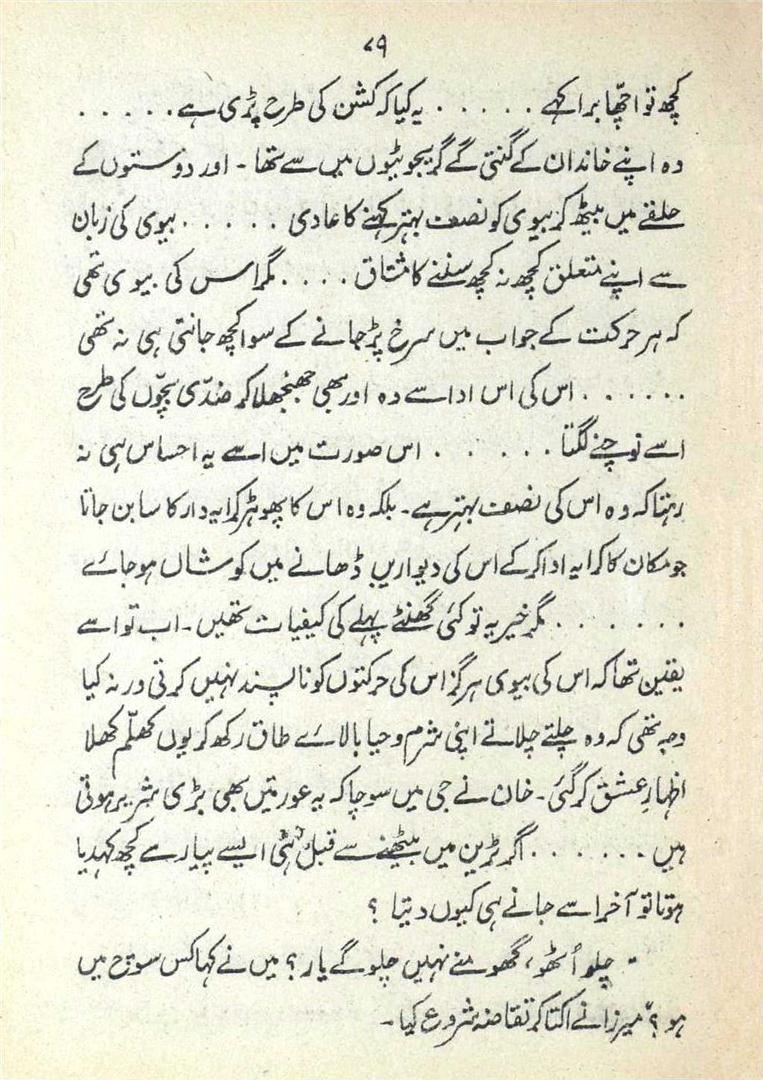 ۷۹
کچھ تو اچھا برا کہے . . . . . یہ کیا کہ کشن کی طرح پڑی ہے . . . . .
وہ اپنے خاندان کے گنتی کے گریجویٹوں میں سے تھا ۔ اور دوستوں کے
حلقے میں بیٹھ کر بیوی کو نصف بہتر کہنے کا عادی . . . . . بیوی کی زبان
سے اپنے متعلق کچھ نہ کچھ سننے کا مشتاق . . . . مگر اس کی بیوی تھی
کہ ہر حرکت کے جواب میں سرخ پڑ جانے کے سوا کچھ جانتی ہی نہ تھی
. . . . . . اس کی اس ادا سے وہ اور بھی جھنجھلا کر ضدّی بچّوں کی طرح
اسے نوچنے لگتا . . . . . . اس صورت میں اسے یہ احساس ہی نہ
رہتا کہ وہ اس کی نصف بہتر ہے ۔ بلکہ وہ اس کا پھوہڑ کرایہ دار کا سا بن جاتا
جو مکان کا کرایہ ادا کر کے اس کی دیواریں ڈھانے میں کوشاں ہو جائے
. . . . . . مگر خیر یہ تو کئی گھنٹے پہلے کی کیفیات تھیں ۔ اب تو اسے
یقین تھا کہ اس کی بیوی ہرگز اس کی حرکتوں کو ناپسند نہیں کرتی ورنہ کیا
وجہ تھی کہ وہ چلتے چلاتے اپنی شرم و حیا بالائے طاق رکھ کر یوں کھلّم کھلا
اظہارِ عشق کر گئی ۔ خان نے جی میں سوچا کہ یہ عورتیں بھی بڑی شریر ہوتی
ہیں . . . . . . اگر ٹرین میں بیٹھنے سے قبل ہی ایسے پیار سے کچھ کہدیا
ہوتا تو آخر اسے جانے ہی کیوں دیتا ؟
" چلو اُٹھو، گھومنے نہیں چلو گے یار ؟ میں نے کہا کس سوچ میں
ہو ؟" میرزا نے اکتا کر تقاضہ شروع کیا ۔